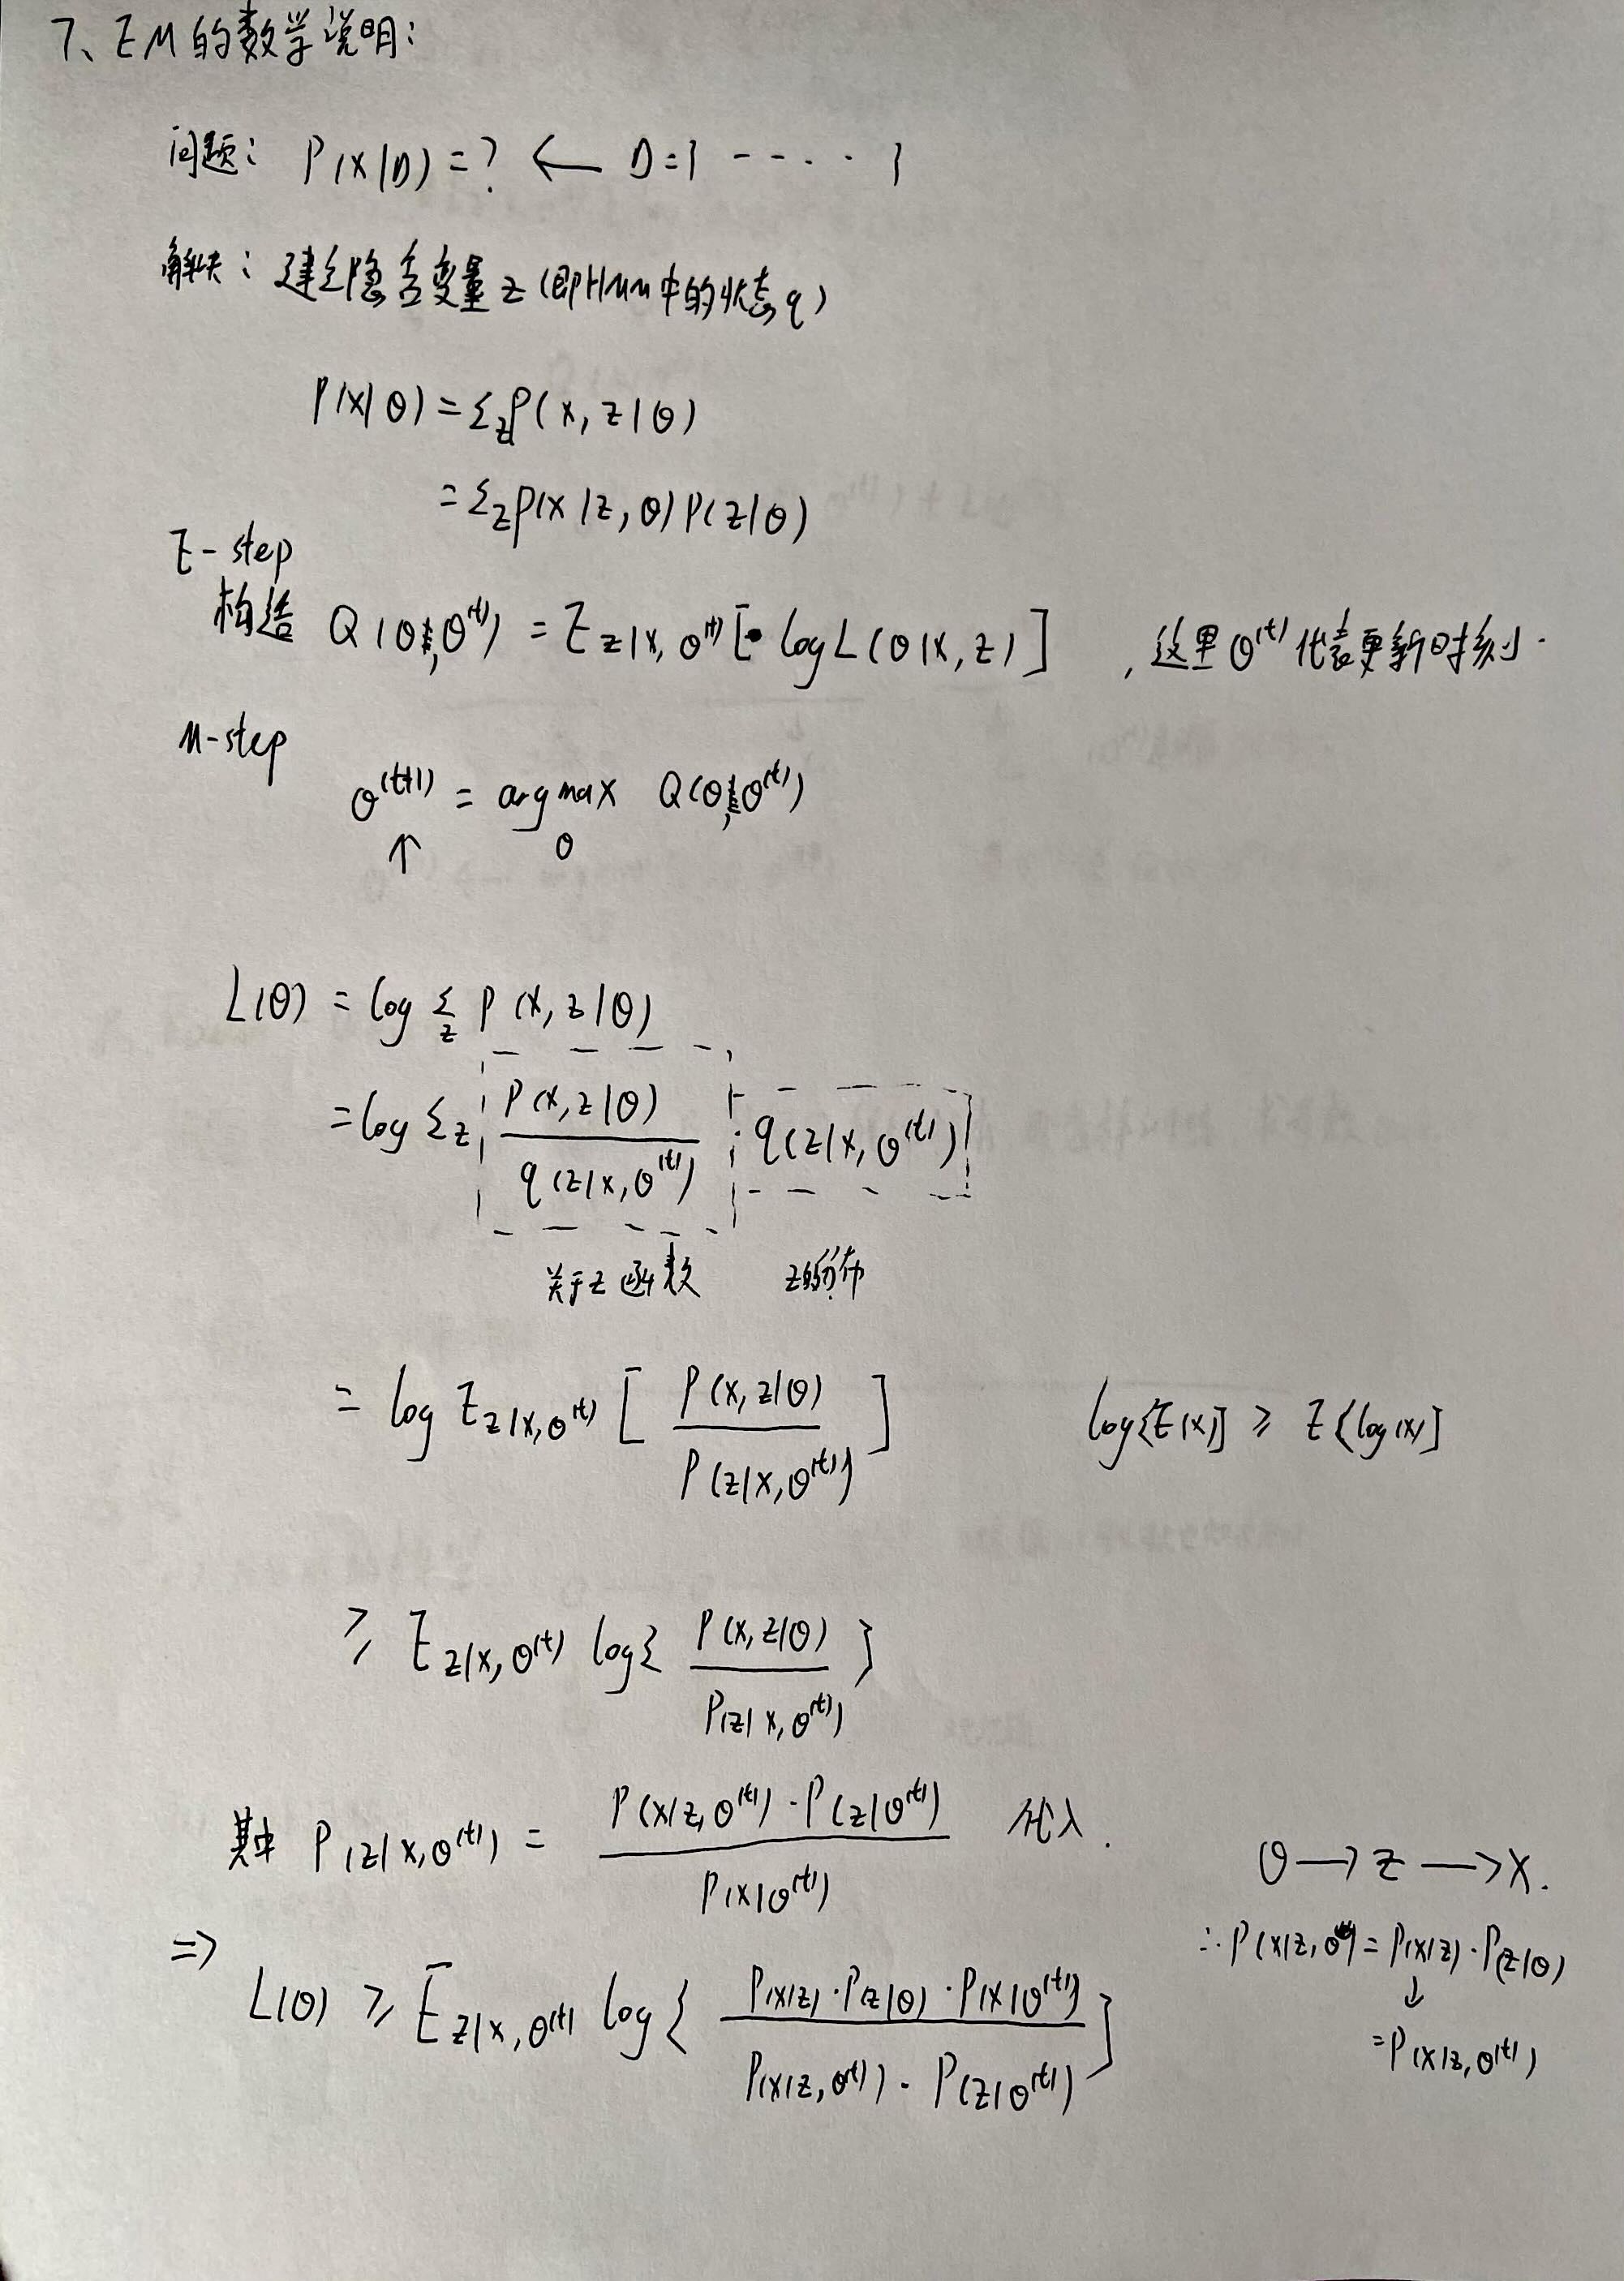 7、EM的数学说明：
问题： P(X|D) = ? ← D={ - - - - · }
解决：建立隐含变量z (即HMM中的状态q)
P(X|θ) = Σ_z P(x, z|θ)
= Σ_z P(x|z, θ) P(z|θ)
E-step
构造 Q(θ, θ^(t)) = E_{z|x, θ^(t)} [ log L(θ|x, z) ] , 这里θ^(t)代表更新时刻.
M-step
θ^(t+1) = arg max_θ Q(θ, θ^(t))
↑
L(θ) = log Σ_z P(x, z|θ)
= log Σ_z P(x, z|θ) / q(z|x, θ^(t)) · q(z|x, θ^(t))
关于z函数 z的分布
= log E_{z|x, θ^(t)} [ P(x, z|θ) / P(z|x, θ^(t)) ] log{E(x)] ≥ E{log(x)]
≥ E_{z|x, θ^(t)} log{ P(x, z|θ) / P(z|x, θ^(t)) }
其中 P(z|x, θ^(t)) = P(x|z, θ^(t)) · P(z|θ^(t)) / P(x|θ^(t)) 代入.
θ → z → X.
∴ P(x|z, θ) = P(x|z) · P(z|θ)
↓
= P(x|z, θ^(t))
⇒
L(θ) ≥ E_{z|x, θ^(t)} log{ P(x|z) · P(z|θ) · P(x|θ^(t)) / P(x|z, θ^(t)) · P(z|θ^(t)) ]